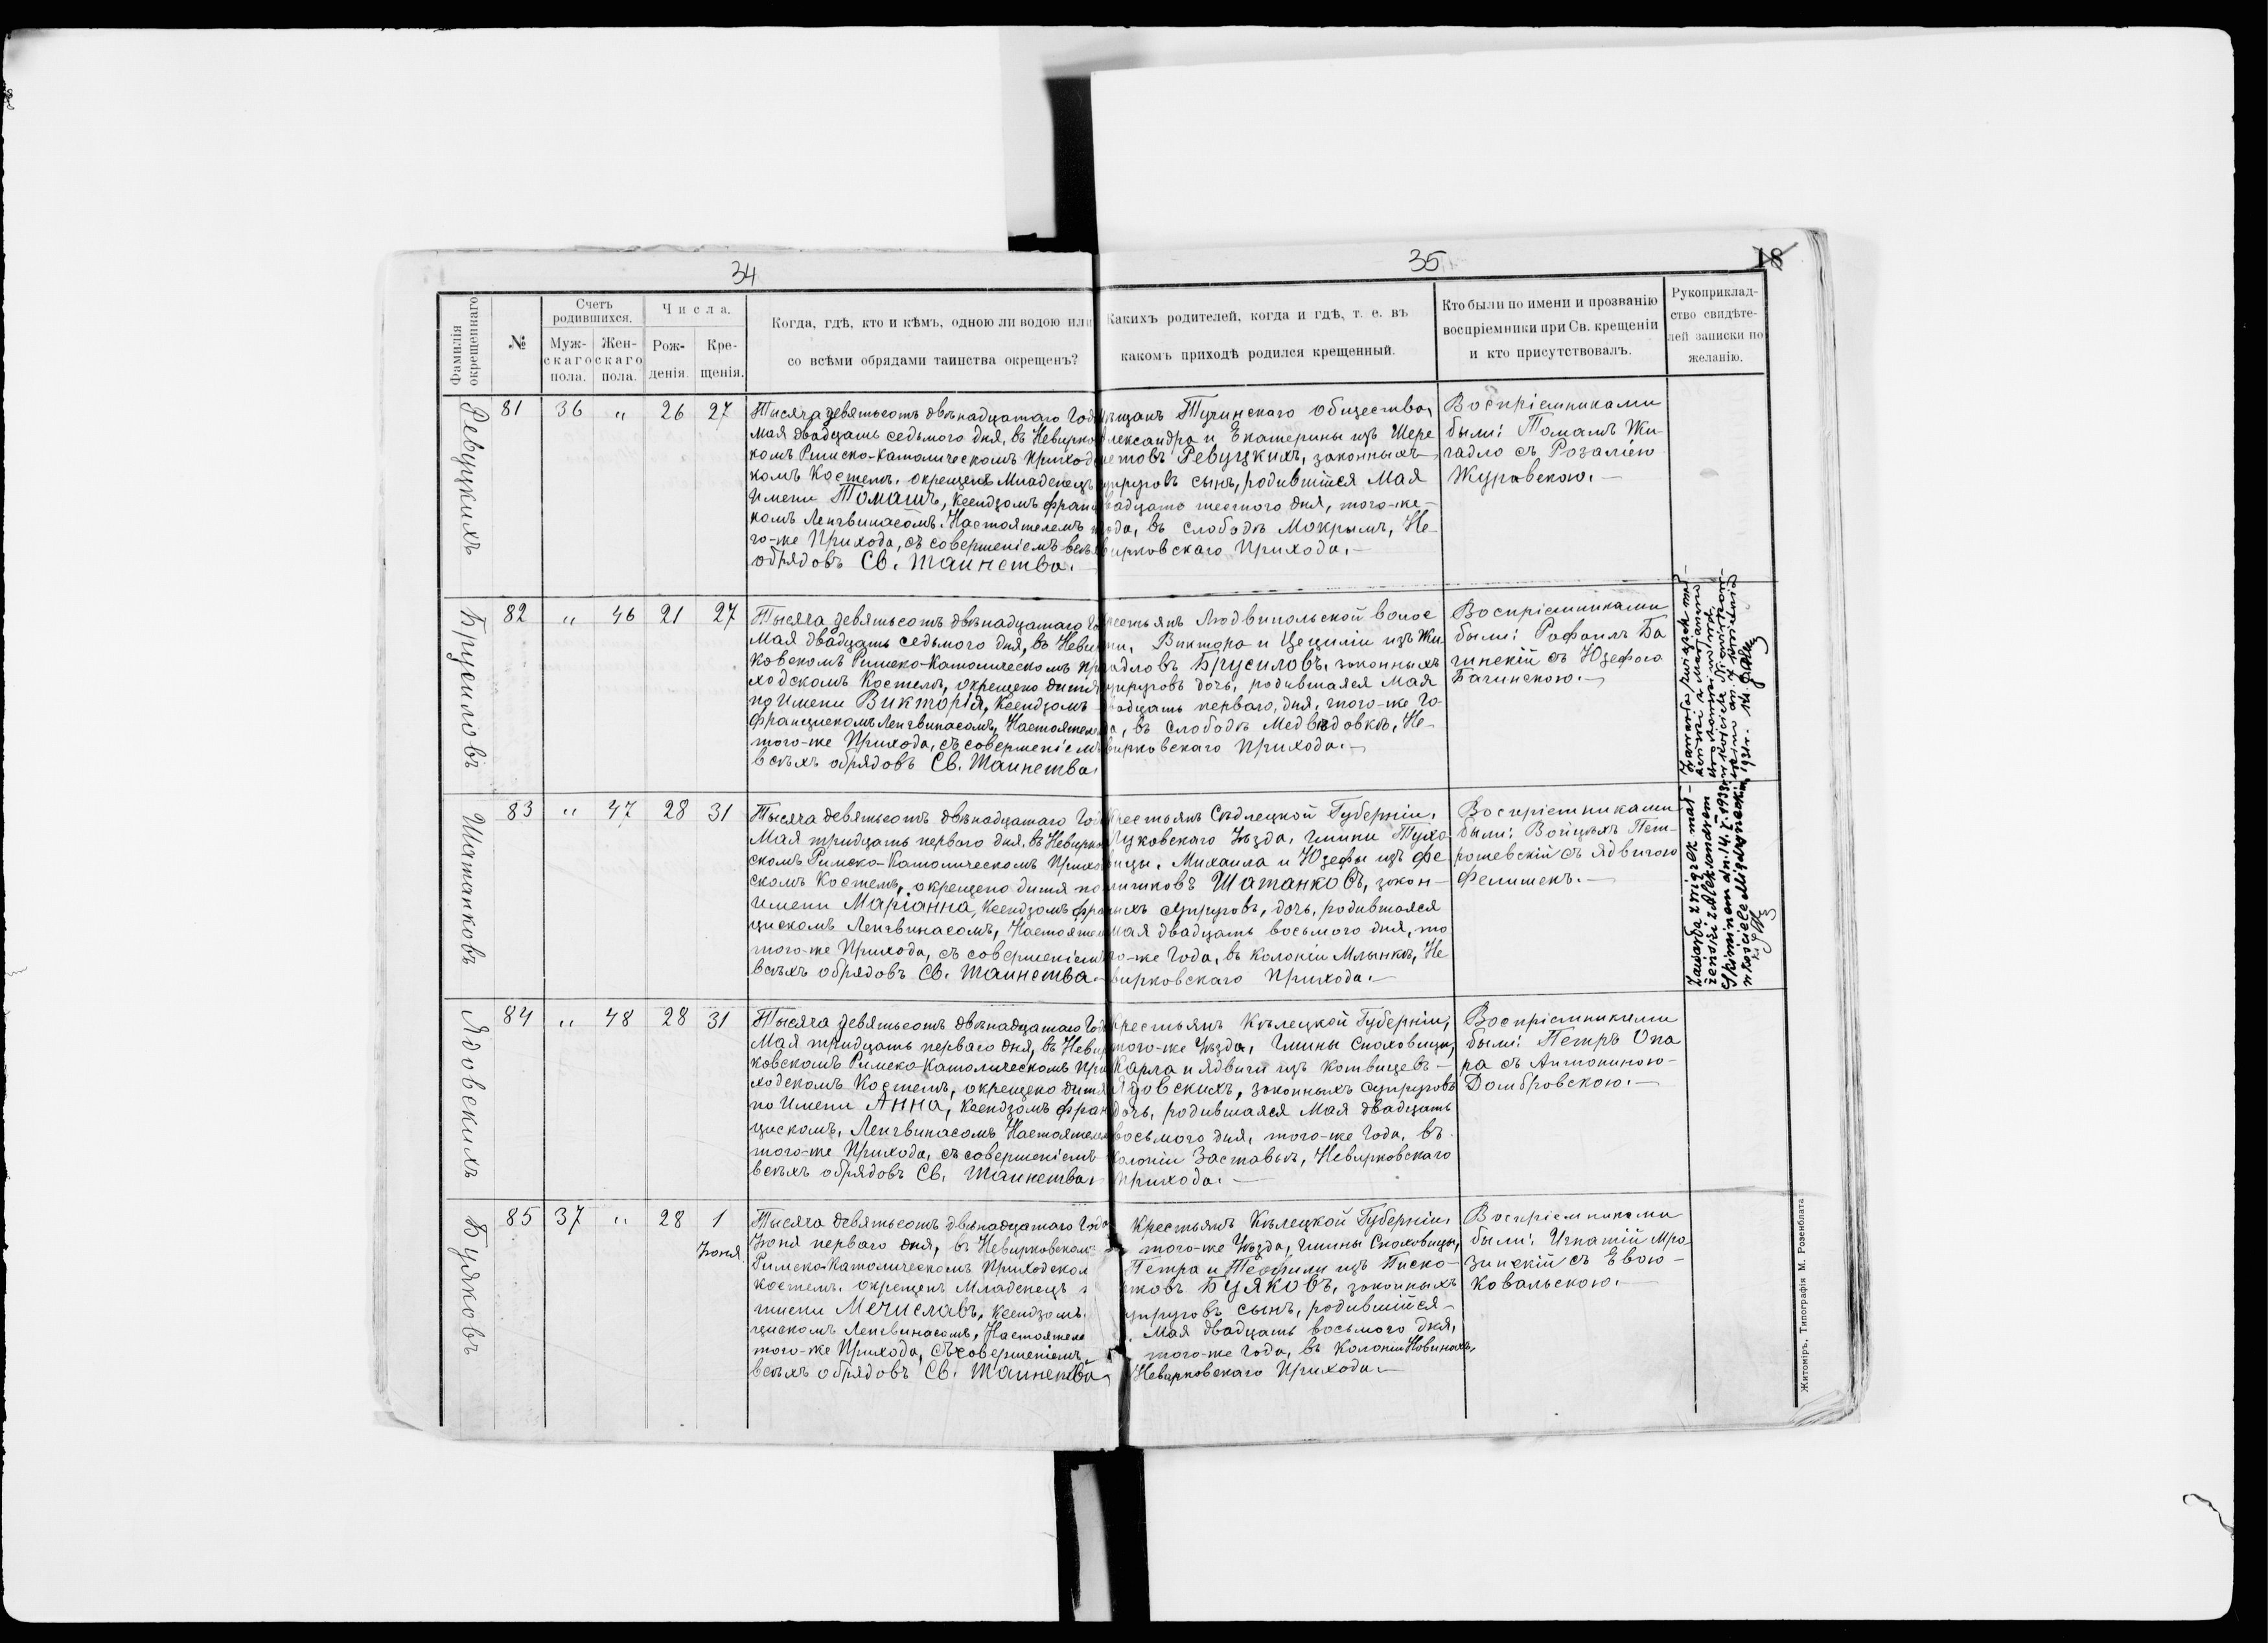 34
35
18
Фамилія
окрещеннаго
№
Счетъ
родившихся.
Муж-
скаго
пола.
Жен-
скаго
пола.
Числа.
Рож-
денія.
Кре-
щенія.
Когда, гдѣ, кто и кѣмъ, одною ли водою или
со всѣми обрядами таинства окрещенъ?
Какихъ родителей, когда и гдѣ, т. е. въ
какомъ приходѣ родился крещенный.
Кто были по имени и прозванію
воспріемники при Св. крещеніи
и кто присутствовалъ.
Рукоприклад-
ство свидѣте-
лей записки по
желанію.
Ревуцкихъ
81 36 " 26 27
Тысяча девятьсотъ двѣнадцатаго Год
Мая двадцать седьмого дня, въ Невирко
комъ Римско-Католическомъ Приход
комъ Костелѣ, окрещенъ Младенецъ
Имени Томашъ, Ксендзомъ Фран
комъ Ленгвинасомъ, Настоятелемъ
го-же Прихода, съ совершеніемъ всѣх
обрядовъ Св. Таинства.
мѣщанъ Тучинскаго общества,
Александра и Екатерины изъ Шере
метовъ Ревуцкихъ, законныхъ
супруговъ сынъ, родившійся Мая
двадцать шестого дня, того-же
года, въ слободѣ Мокрымъ, Не-
вирковскаго Прихода.—
Воспріемниками
были: Томашъ Жи-
гадло съ Розаліею
Журавскою.—
Брусиловъ
82 " 46 21 27
Тысяча девятьсотъ двѣнадцатаго Го
Мая двадцать седьмого дня, въ Невир
ковскомъ Римско-Католическомъ При
ходскомъ Костелѣ, окрещено дитя
по Имени Викторія, Ксендзомъ
Францискомъ Ленгвинасомъ, Настоятеле
того-же Прихода, съ совершеніемъ
всѣхъ обрядовъ Св. Таинства.
крестьянъ Людвипольской волос
ти, Виктора и Цециліи изъ Жи
гадловъ Брусиловъ, законныхъ
супруговъ дочь, родившаяся Мая
двадцать перваго, дня, того-же Го-
да, въ слободѣ Медвѣдовкѣ, Не-
вирковскаго Прихода.—
Воспріемниками
были: Рафаилъ Ба
гинскій съ Юзефою
Багинскою.—
Шатанковъ
83 " 47 28 31
Тысяча девятьсотъ двѣнадцатаго Год
Мая тридцать перваго дня, въ Невирко
скомъ Римско-Католическомъ Прихо
скомъ Костелѣ, окрещено дитя по
Имени Маріанна, Ксендзомъ Фра
цискомъ Ленгвинасомъ, Настояте
того-же Прихода, съ совершеніем
всѣхъ обрядовъ Св. Таинства.—
Крестьянъ Сѣдлецкой Губерніи,
Луковскаго Уѣзда, Гмины Тухо-
вицы, Михаила и Юзефы изъ Фе
лишковъ Шатанковъ, закон-
ныхъ супруговъ, дочь, родившаяся
Мая двадцать восьмого дня, то
го-же Года, въ колоніи Млынкѣ, Не
вирковскаго Прихода.—
Воспріемниками
были: Войцѣхъ Пет-
рошевскій съ Ядвигою
Фелишекъ.—
Zawarła związek mał-
żeński z Aleksandrem
dn. 14. X. 1933
w kościele
Ядовскихъ
84 " 48 28 31
Тысяча девятьсотъ двѣнадцатаго Год
Мая тридцать перваго дня, въ Невир
ковскомъ Римско-Католическомъ При
ходскомъ Костелѣ, окрещено дитя
по Имени Анна, Ксендзомъ Фран
цискомъ, Ленгвинасомъ Настоятелем
того-же Прихода, съ совершеніемъ
всѣхъ обрядовъ Св. Таинства.
Крестьянъ Кѣлецкой Губерніи,
того-же Уѣзда, Гмины Снаховицы,
Карла и Ядвиги изъ Котвицевъ—
Ядовскихъ, законныхъ супруговъ
дочь, родившаяся Мая двадцать
восьмого дня, того-же Года, въ
колоніи Заставьѣ, Невирковскаго
Прихода.—
Воспріемниками
были: Петръ Опа
ра съ Антониною
Домбровскою.—
Буяковъ
85 37 " 28 1
Іюня
Тысяча девятьсотъ двѣнадцатаго Года
Іюня перваго дня, въ Невирковском
Римско-Католическомъ Приходском
костелѣ, окрещенъ Младенецъ
имени Мечиславъ, Ксендзомъ
цискомъ Ленгвинасомъ, Настоятеле
того-же Прихода, съ совершеніемъ
всѣхъ обрядовъ Св. Таинства
Крестьянъ Кѣлецкой Губерніи,
того-же Уѣзда, Гмины Снаховицы,
Петра и Теофили изъ Писко-
ковъ Буяковъ, законныхъ
супруговъ сынъ, родившійся
Мая двадцать восьмого дня,
того-же Года, въ колоніи Новинахъ,
Невирковскаго Прихода.—
Воспріемниками
были: Игнатій Мро
зинскій съ Евою
Ковальскою.—
Житомірь, Типографія М. Розенблата